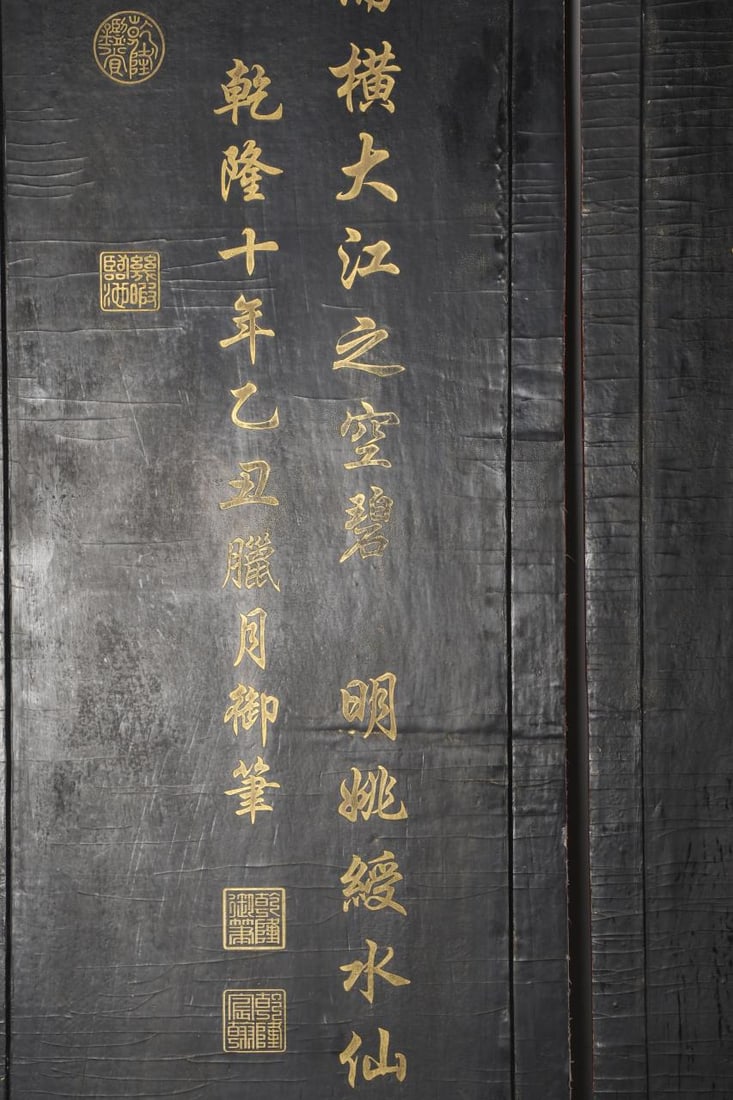 横大江之空碧 明姚綬水仙
乾隆十年乙丑臘月御筆
乾隆御筆
乾隆宸翰
乾隆鑑賞
幾暇臨池